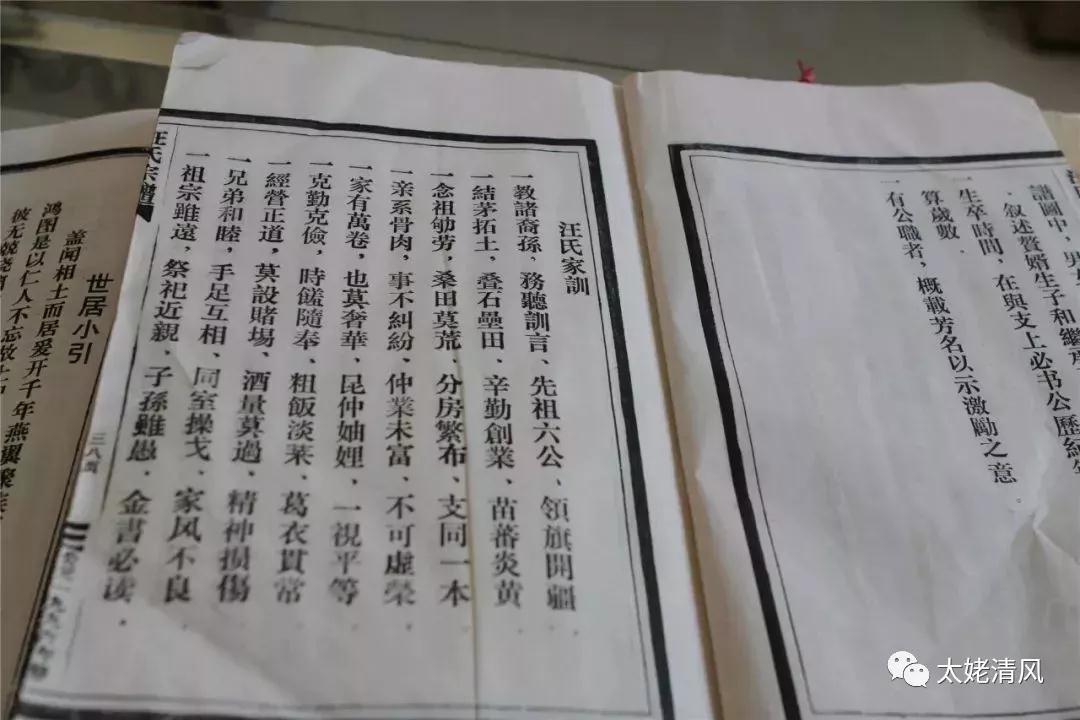 譜圖中，男
叙述贅婿生子和繼承
生卒時間，在與支上必书公歷紀年
算歲數．
一有公職者，概載芳名以示激勵之意．
汪氏家訓
一教諸裔孫，務聽訓言、先祖六公、領旗開疆．
一結茅拓土，叠石壘田、辛勤創業、苗蕃炎黄
一念祖劬劳，桑田莫荒、分房繁布、支同一本
一亲系骨肉，事不糾紛、仲業未富、不可虚荣．
一家有萬卷，也莫奢華、昆仲妯娌、一視平等
一克勤克儉，時饈隨奉、粗飯淡菜、葛衣貫常
一經營正道，莫設賭場、酒量莫過、精神損傷
一兄弟和睦，手足互相、同室操戈、家风不良
一祖宗雖遠，祭祀近親、子孫雖愚、金書必读．
汪氏宗譜
三八
世居小引
盖闻相土而居爰开千年燕翼
鸿图是以仁人不忘故土
太姥清风